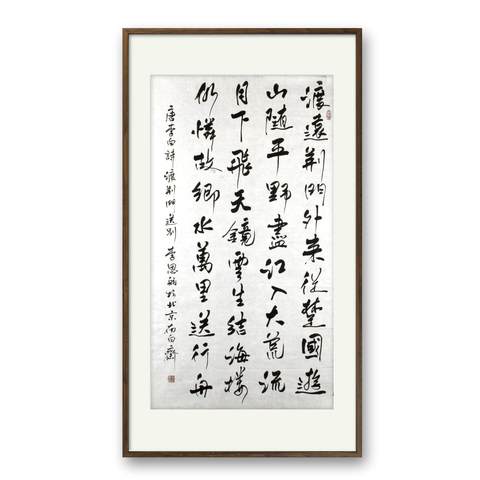 渡遠荆門外来從楚國遊
山隨平野盡江入大荒流
月下飛天鏡雲生結海樓
仍憐故鄉水萬里送行舟
唐李白詩渡荆門送别 李 於北京 白齋